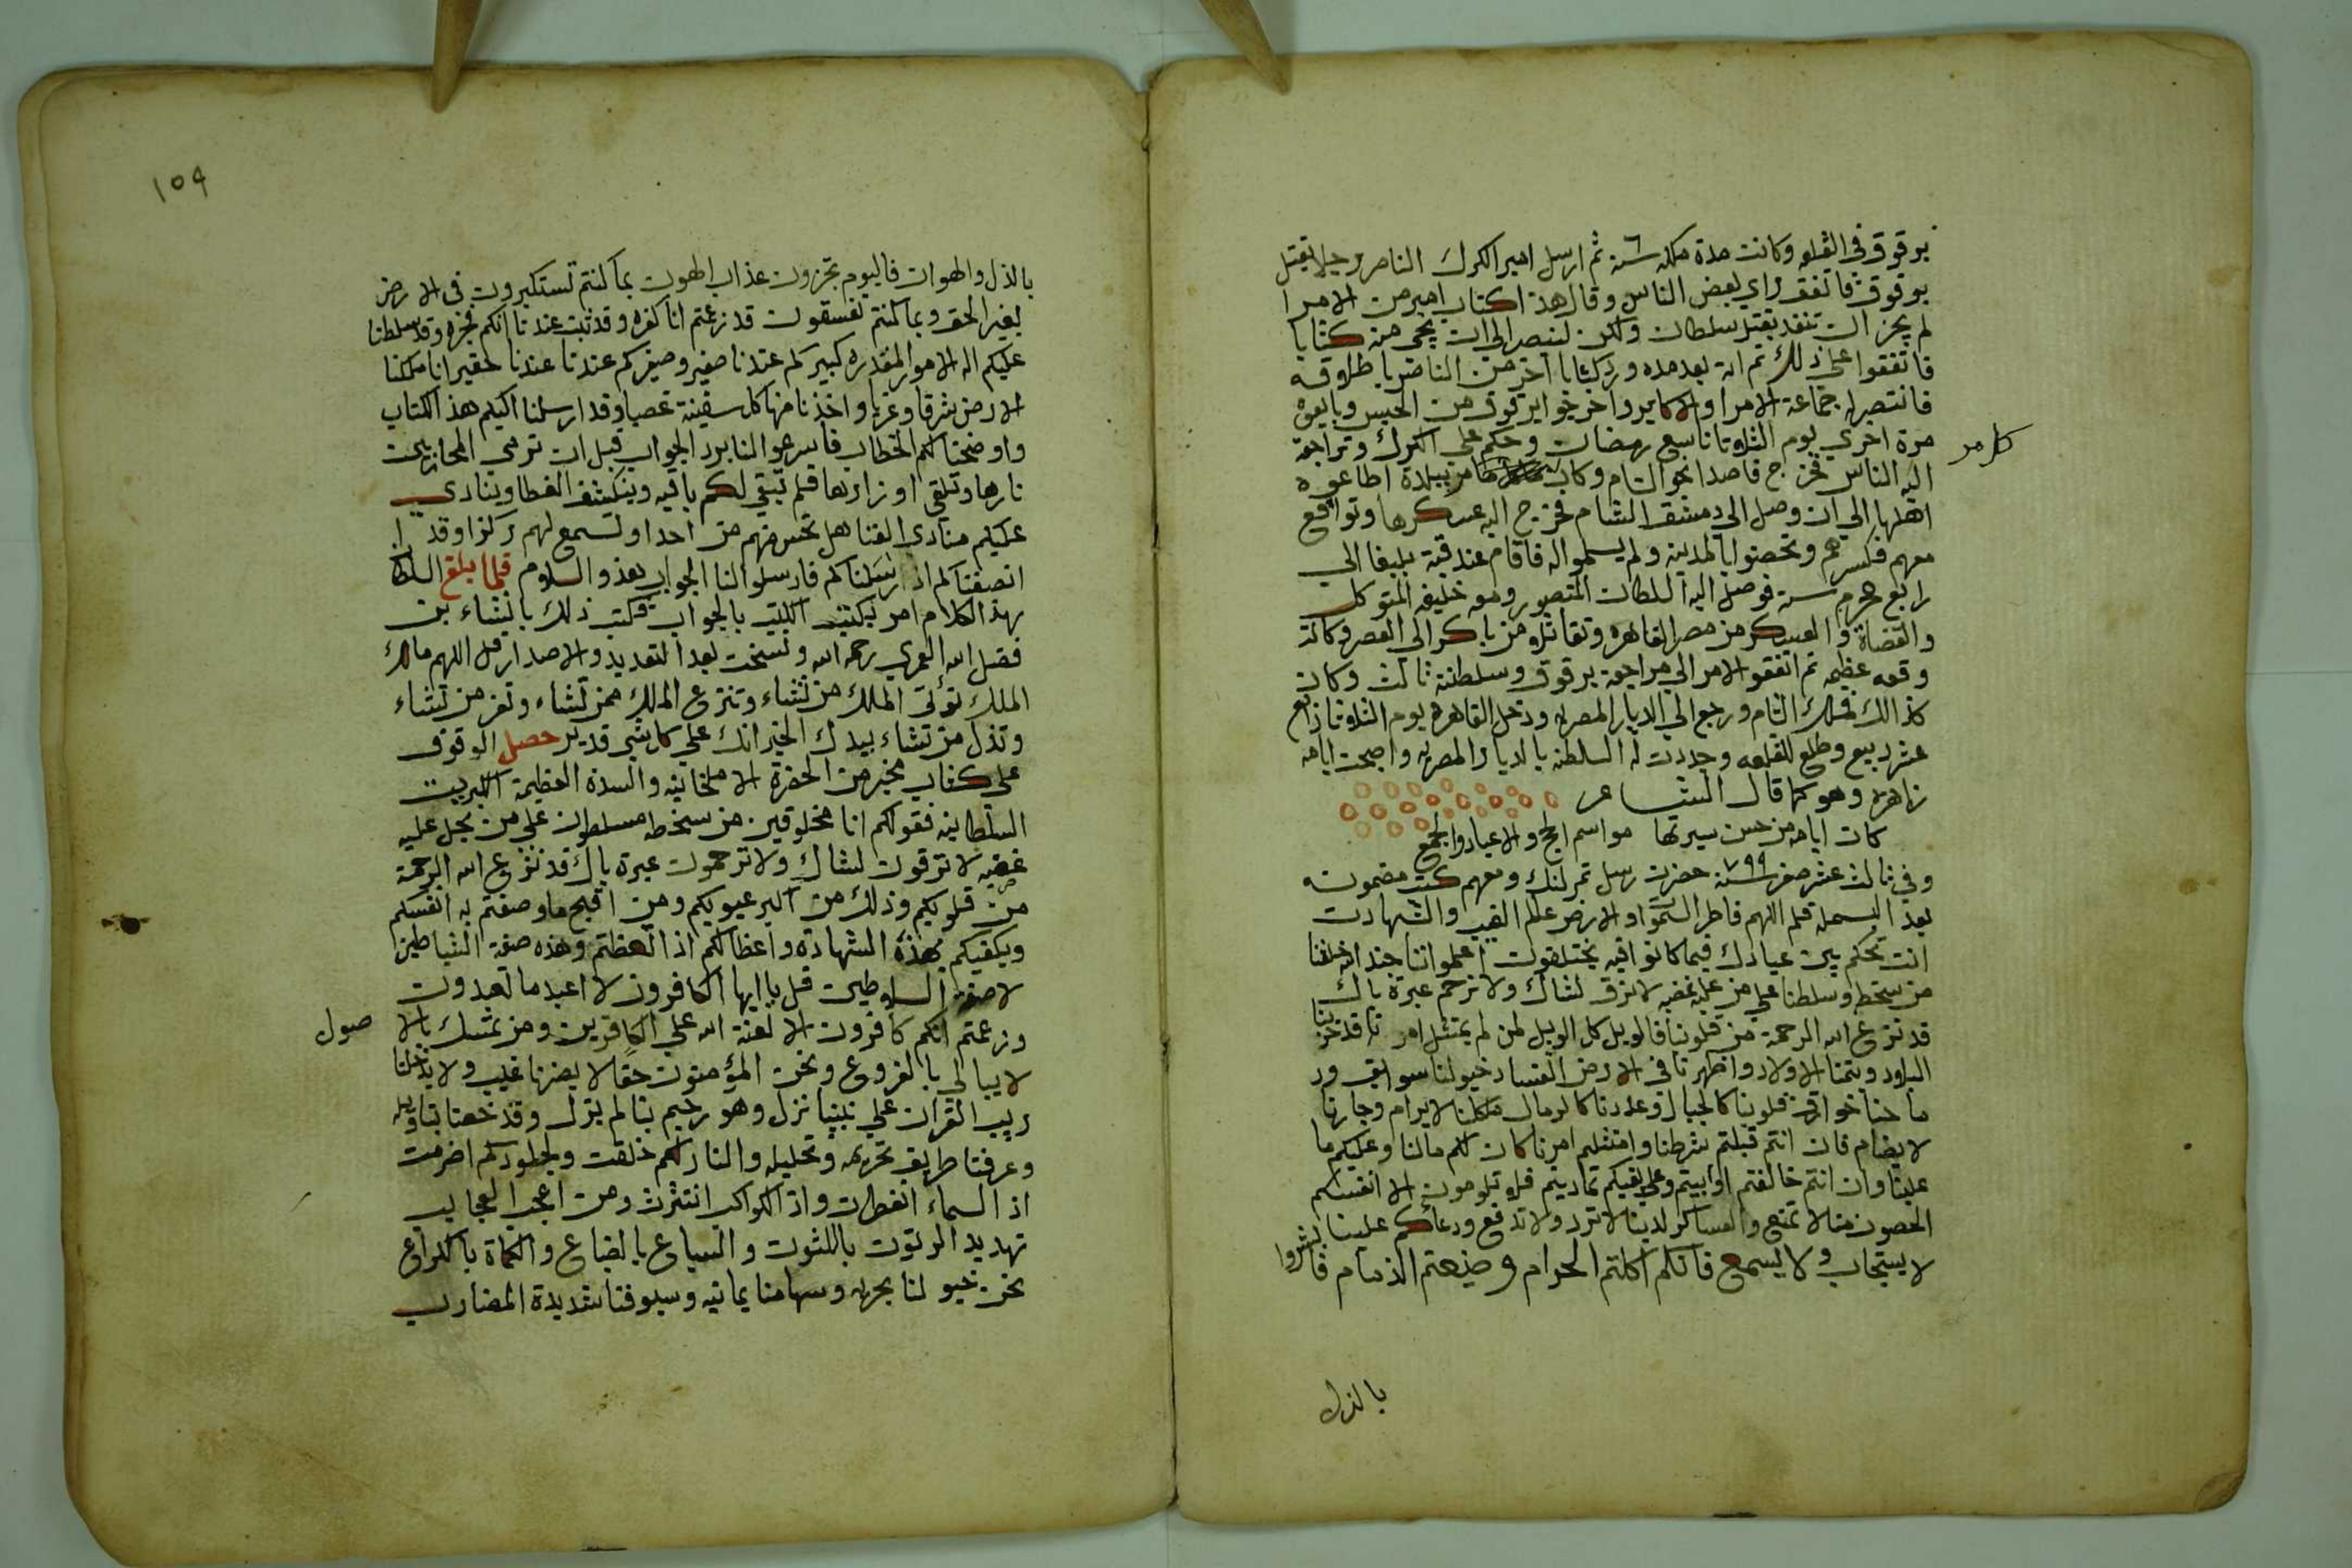 برقوق في القلعه وكانت مدة ملكه ٦ سنة ثم ارسل امير الكرك الناصر رجلا بقتل
برقوق فاتفق راي بعض الناس وقال هذا كتاب امير من الامرا
لم يجز ان تنفد بقتل سلطان ولكن لننصر الى ان يجي من كتابا
فاتفقوا على ذلك ثم انه بعد مده ورد كتابا اخر من الناصر باطلاقه
فانتصر له جماعة الامرا والاكابر واخرجوا برقوق من الحبس وبايعوه
مرة اخري يوم الثلاثا تاسع رمضان وحكم على الكرك وتراجعة
اليه الناس فخرج قاصدا نحو الشام وكان كلما مر ببلدة اطاعوه
كلما مر
اهلها الي ان وصل الي دمشق الشام فخرج اليه عسكرها وتواقع
معهم فكسرهم وتحصنوا بالمدينه ولم يسلموا له فاقام عند قبة يلبغا الي
رابع محرم سنة فوصل اليه السلطان المنصور ومعه خليفه المتوكل
والقضاة والعسكر من مصر القاهره وتقاتلوا من باكر الى العصر وكانت
وقعه عظيمه ثم اتفقو الامر الي مراجعة برقوق وسلطنة ثالث وكان
كذالك فملك الشام ورجع الي الديار المصريه ودخل القاهره يوم الثلاثا رابع
عشر ربيع وطلع للقلعه وجددت له السلطنه بالديار المصريه واصبحت ايامه
زاهره وهو كما قال الشاعر
كان ايامه من حسن سيرتها مواسم الحج والاعياد والجمع
وفي ثالث عشر صفر سنة ٧٩٩ حضرت رسل تمرلنك ومعهم كتب مضمونه
بعد البسمله قلم اللهم فاطر السموات والارض عالم الغيب والشهادت
انت تحكم بين عبادك فيما كانوا فيه يختلفون اعملوا اننا جند الله خلقنا
من سخطه وسلطنا على من عليه غضبه لا نرق لشاك ولا نرحم عبرة باك
قد نزع الله الرحمة من قلوبنا فالويل كل الويل لمن لم يمتثل امرنا قد خربنا
البلاد ويتمنا الاولاد واظهرنا في الارض الفساد خيولنا سوابق ور
ماحنا خوارق قلوبنا كالجبال وعددنا كالرمال ملكنا لا يرام وجارنا
لا يضام فان انتم قبلتم شرطنا وامتثلم امرنا كان لكم مالنا وعليكم ما
علينا وان انتم خالفتم او ابيتم وعلى بغيكم تماديتم فلا تلومون الا انفسكم
الحصون منا لا تمنع والعساكر لدينا لا ترد ولا تدفع ودعاكم علينا
لا يستجاب ولا يسمع فانكم اكلتم الحرام وضيعتم الذمام فابشروا
بالذل
١٥٩
بالذل والهوان فاليوم تجزون عذاب الهون بما كنتم تستكبرون في الارض
بغير الحق وبما كنتم تفسقون قد زعمتم انا كفره وقد ثبت عندنا انكم فجره وقد سلطنا
عليكم اله الامور المقدره كبيركم عندنا صغير وصغيركم عندنا عندنا لحقير انا ملكنا
الارض شرقا وغربا واخذنا منها كل سفينة غصبا وقد ارسلنا اليكم هذا الكتاب
واوضحنا لكم الخطاب فاسرعوا لنا برد الجواب قبل ان ترمي المحاربين
نارها وتلقي اوزارها فلم تبقي لكم باقيه وينكشف الغطا وينادي
عليكم منادي الفنا هل تحس منهم من احد او تسمع لهم ركزا وقد
انصفناكم اذ ارسلناكم فارسلوا لنا الجواب بعد والسلام فلما بلغ السلطان
بهذا الكلام امر بكتب الكتب بالجواب فكتب ذلك بانشاء بن
فضل الله العمري رحمه الله ونسخت بعد التعديد والاصدار قل اللهم مالك
الملك تؤتى الملك من تشاء وتنزع الملك ممن تشاء وتعز من تشاء
وتذل من تشاء بيدك الخير انك على كل شي قدير حصل الوقوف
على كتاب مخبر من الحضرة الا ملخانيه والسدة العظيمة الكبريت
السلطانيه فقولكم انا مخلوقين من سخطه مسلطون على من يحل عليه
غضبه لا ترقون لشاك ولا ترحمون عبرة باك قد نزع الله الرحمة
من قلوبكم وذلك من اكبر عيوبكم ومن اقبح ما وصفتم به انفسكم
ويكفيكم بهذه الشهادة واعظا لكم اذا اتعظتم وهذه صفة الشياطين
لا صفة السلاطين قل يا ايها الكافرون لا اعبد ما تعبدون
وزعمتم انكم كافرون الا لعنة الله على الكافرين ومن تمسك بالا صول
لا يبالي بالفروع ونحن المؤمنون حقا لا يضرنا عيب ولا يدخلنا
ريب القران علي نبينا نزل وهو رحيم بنا لم يزل وقد خصنا بتاويله
وعرفنا طريق تحريمه وتحليله والنار لكم خلقت ولجلودكم اضرمت
اذ السماء انفطرت واذ الكواكب انتثرت ومن اعجب العجايب
تهديد الرتوت باللثوت والسباع بالضباع والكماة بالكراع
نحن خيولنا بحريه وسهامنا يمانيه وسيوفنا شديدة المضارب